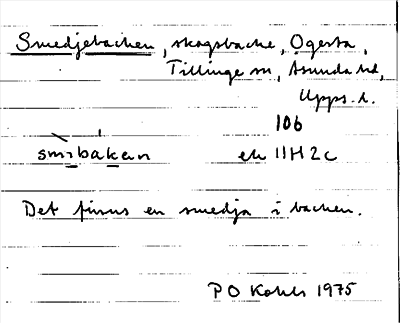 Smedjebacken, skogsbacke, Ögersta,
Tillinge sn, Åsunda hd,
Upps. l.
106
smìbákan ek 11H2c
Det finns en smedja i backen.
P O Kohls 1975